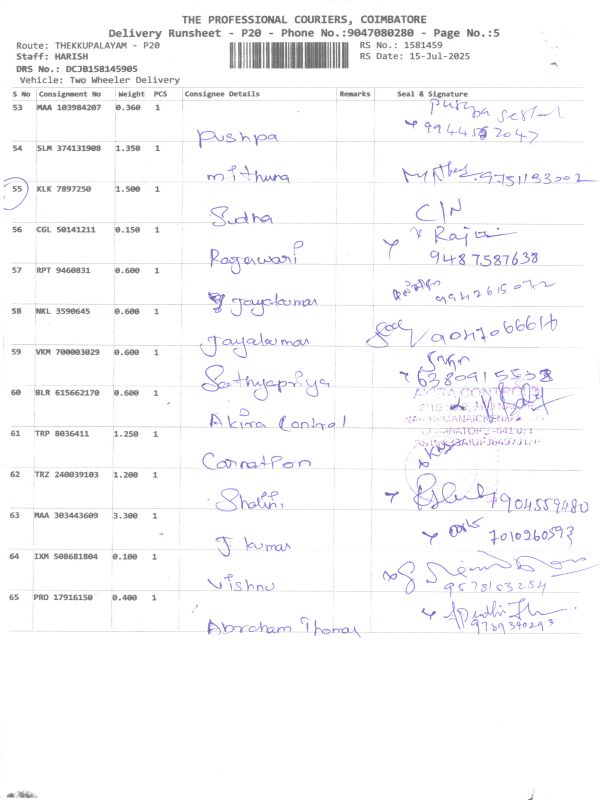 THE PROFESSIONAL COURIERS, COIMBATORE
Delivery Runsheet - P20 - Phone No.:9047080280 - Page No.:5
Route: THEKKUPALAYAM - P20 RS No.: 1581459
Staff: HARISH RS Date: 15-Jul-2025
DRS No.: DCJB158145905
Vehicle: Two Wheeler Delivery
S No Consignment No Weight PCS Consignee Details Remarks Seal & Signature
53 MAA 103984207 0.360 1
Pushpa
54 SLM 374131908 1.350 1
mithuna 9751133002
55 KLK 7897250 1.500 1
Sudha C/N
56 CGL 50141211 0.150 1
Rageswari 9487587638
57 RPT 9460831 0.600 1
Jayakumar 9942615072
58 NKL 3590645 0.600 1
Jayakumar
59 VKM 700003029 0.600 1
Sathyapriya
60 BLR 615662170 0.600 1
Akira Control
61 TRP 8036411 1.250 1
62 TRZ 240039103 1.200 1
Shalini 7904559480
63 MAA 303443609 3.300 1
J kumar 7010260593
64 IXM 508681804 0.100 1
Vishnu 9578153254
65 PRO 17916150 0.400 1
Abraham Thomas 9789340293